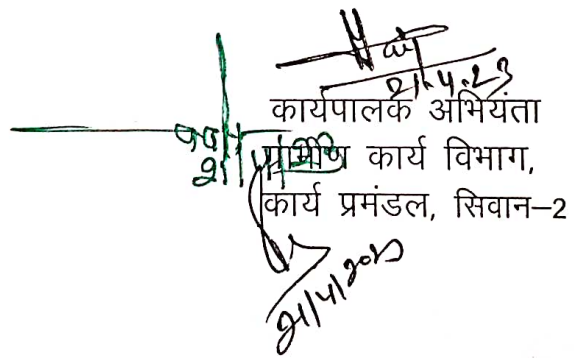 21.4.23
कार्यपालक अभियंता
ग्रामीण कार्य विभाग,
कार्य प्रमंडल, सिवान–2
21/4/2023